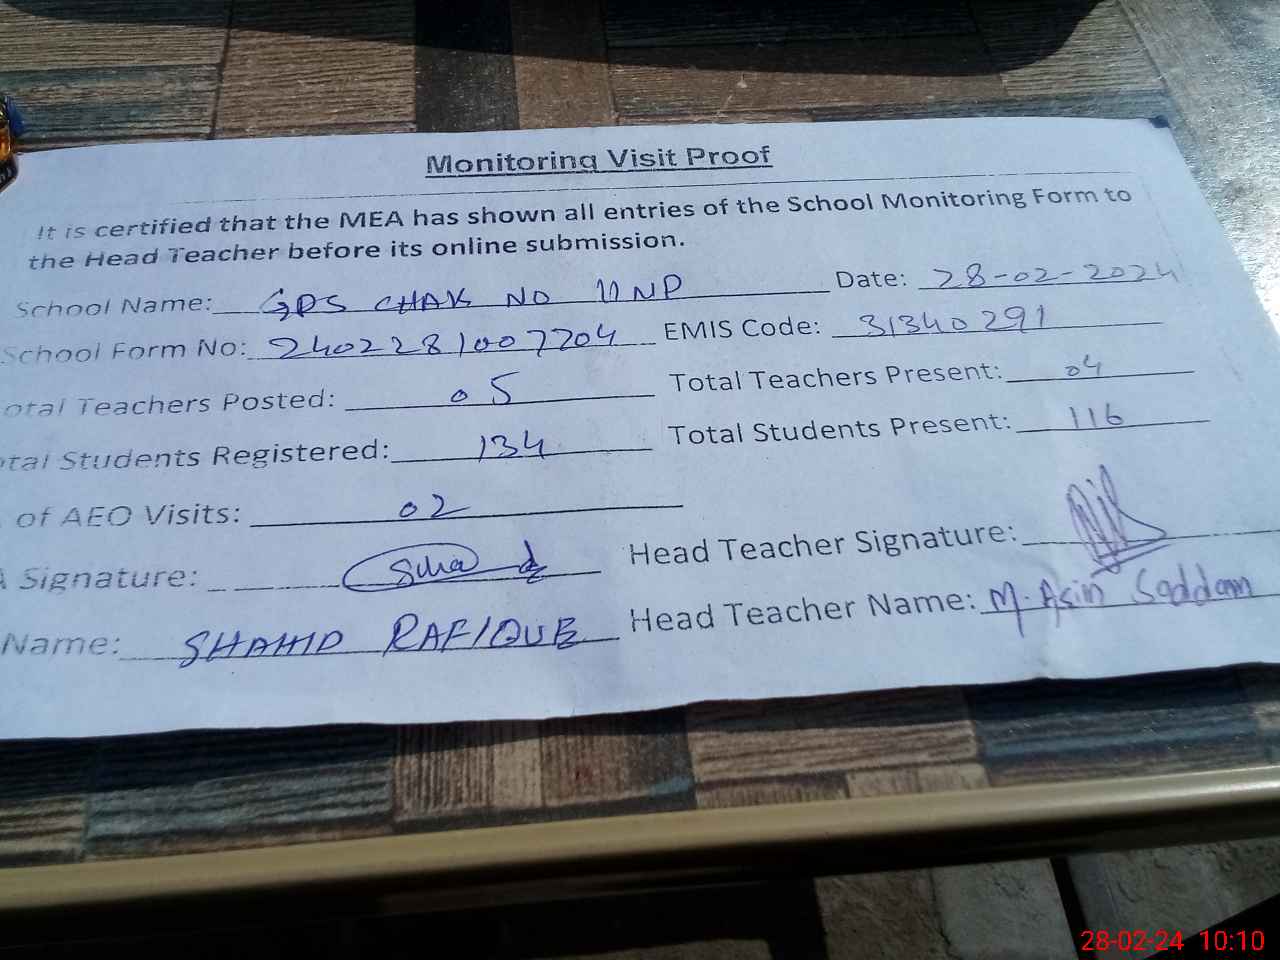 Monitoring Visit Proof
It is certified that the MEA has shown all entries of the School Monitoring Form to
the Head Teacher before its online submission.
School Name: GPS CHAK NO 11NP Date: 28-02-2024
School Form No: 24022281007704 EMIS Code: 31340291
otal Teachers Posted: 05 Total Teachers Present: 04
tal Students Registered: 134 Total Students Present: 116
of AEO Visits: 02
A Signature: Head Teacher Signature:
Name: SHAHID RAFIQUE Head Teacher Name: M. Asim Saddam
28-02-24 10:10